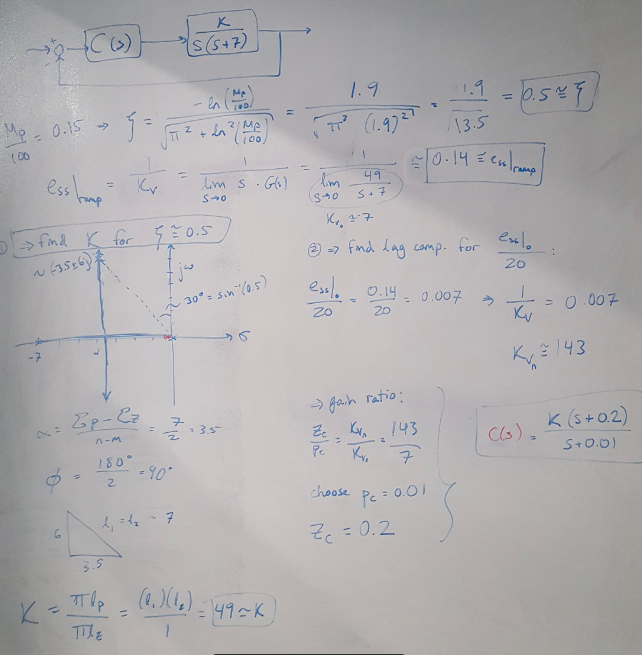 +
-
C(s)
K / s(s+7)
Mp/100 = 0.15 ⇒ ξ = -ln(Mp/100) / √(π² + ln²(Mp/100)) = 1.9 / √(π² (1.9)²) = 1.9 / 13.5 = 0.5 ≅ ξ
ess|ramp = 1/Kv = 1 / lim s→0 s · G(s) = 1 / lim s→0 49/(s+7) ≅ 0.14 ≅ ess|ramp
Kv₀ ≅ 7
① ⇒ find K for ξ ≅ 0.5
~(-3.5±6j)
jω
30° = sin⁻¹(0.5)
σ
-7
α
α = Σp - Σz / n-m = 7/2 = 3.5
ϕ = 180°/2 = 90°
l₁ = l₂ ~ 7
6
3.5
K = πlp / πlz = (l₁)(l₂) / 1 = 49 ≃ K
② ⇒ find lag comp. for ess|₀ / 20 :
ess|₀ / 20 = 0.14 / 20 = 0.007 ⇒ 1/Kv = 0.007
Kvn ≅ 143
⇒ gain ratio:
Zc/Pc = Kvn/Kv₀ = 143/7
choose pc = 0.01
Zc = 0.2
C(s) = K(s+0.2) / s+0.01